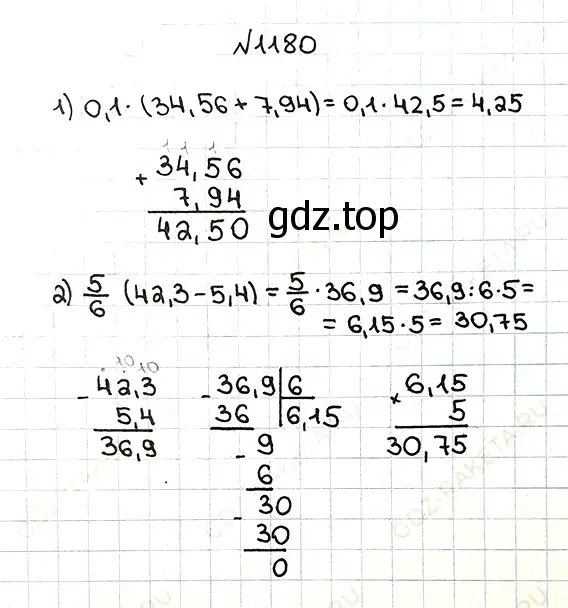 №1180
1) 0,1·(34,56+7,94)=0,1·42,5=4,25
1 1 1
+ 34,56
7,94
42,50
gdz.top
2) 5/6 (42,3-5,4) = 5/6 · 36,9 = 36,9:6·5=
= 6,15·5 = 30,75
10 10
- 42,3
5,4
36,9
- 36,9 | 6
36 | 6,15
- 9
6
- 30
30
0
× 6,15
5
30,75
GDZ-RAKETA.RU